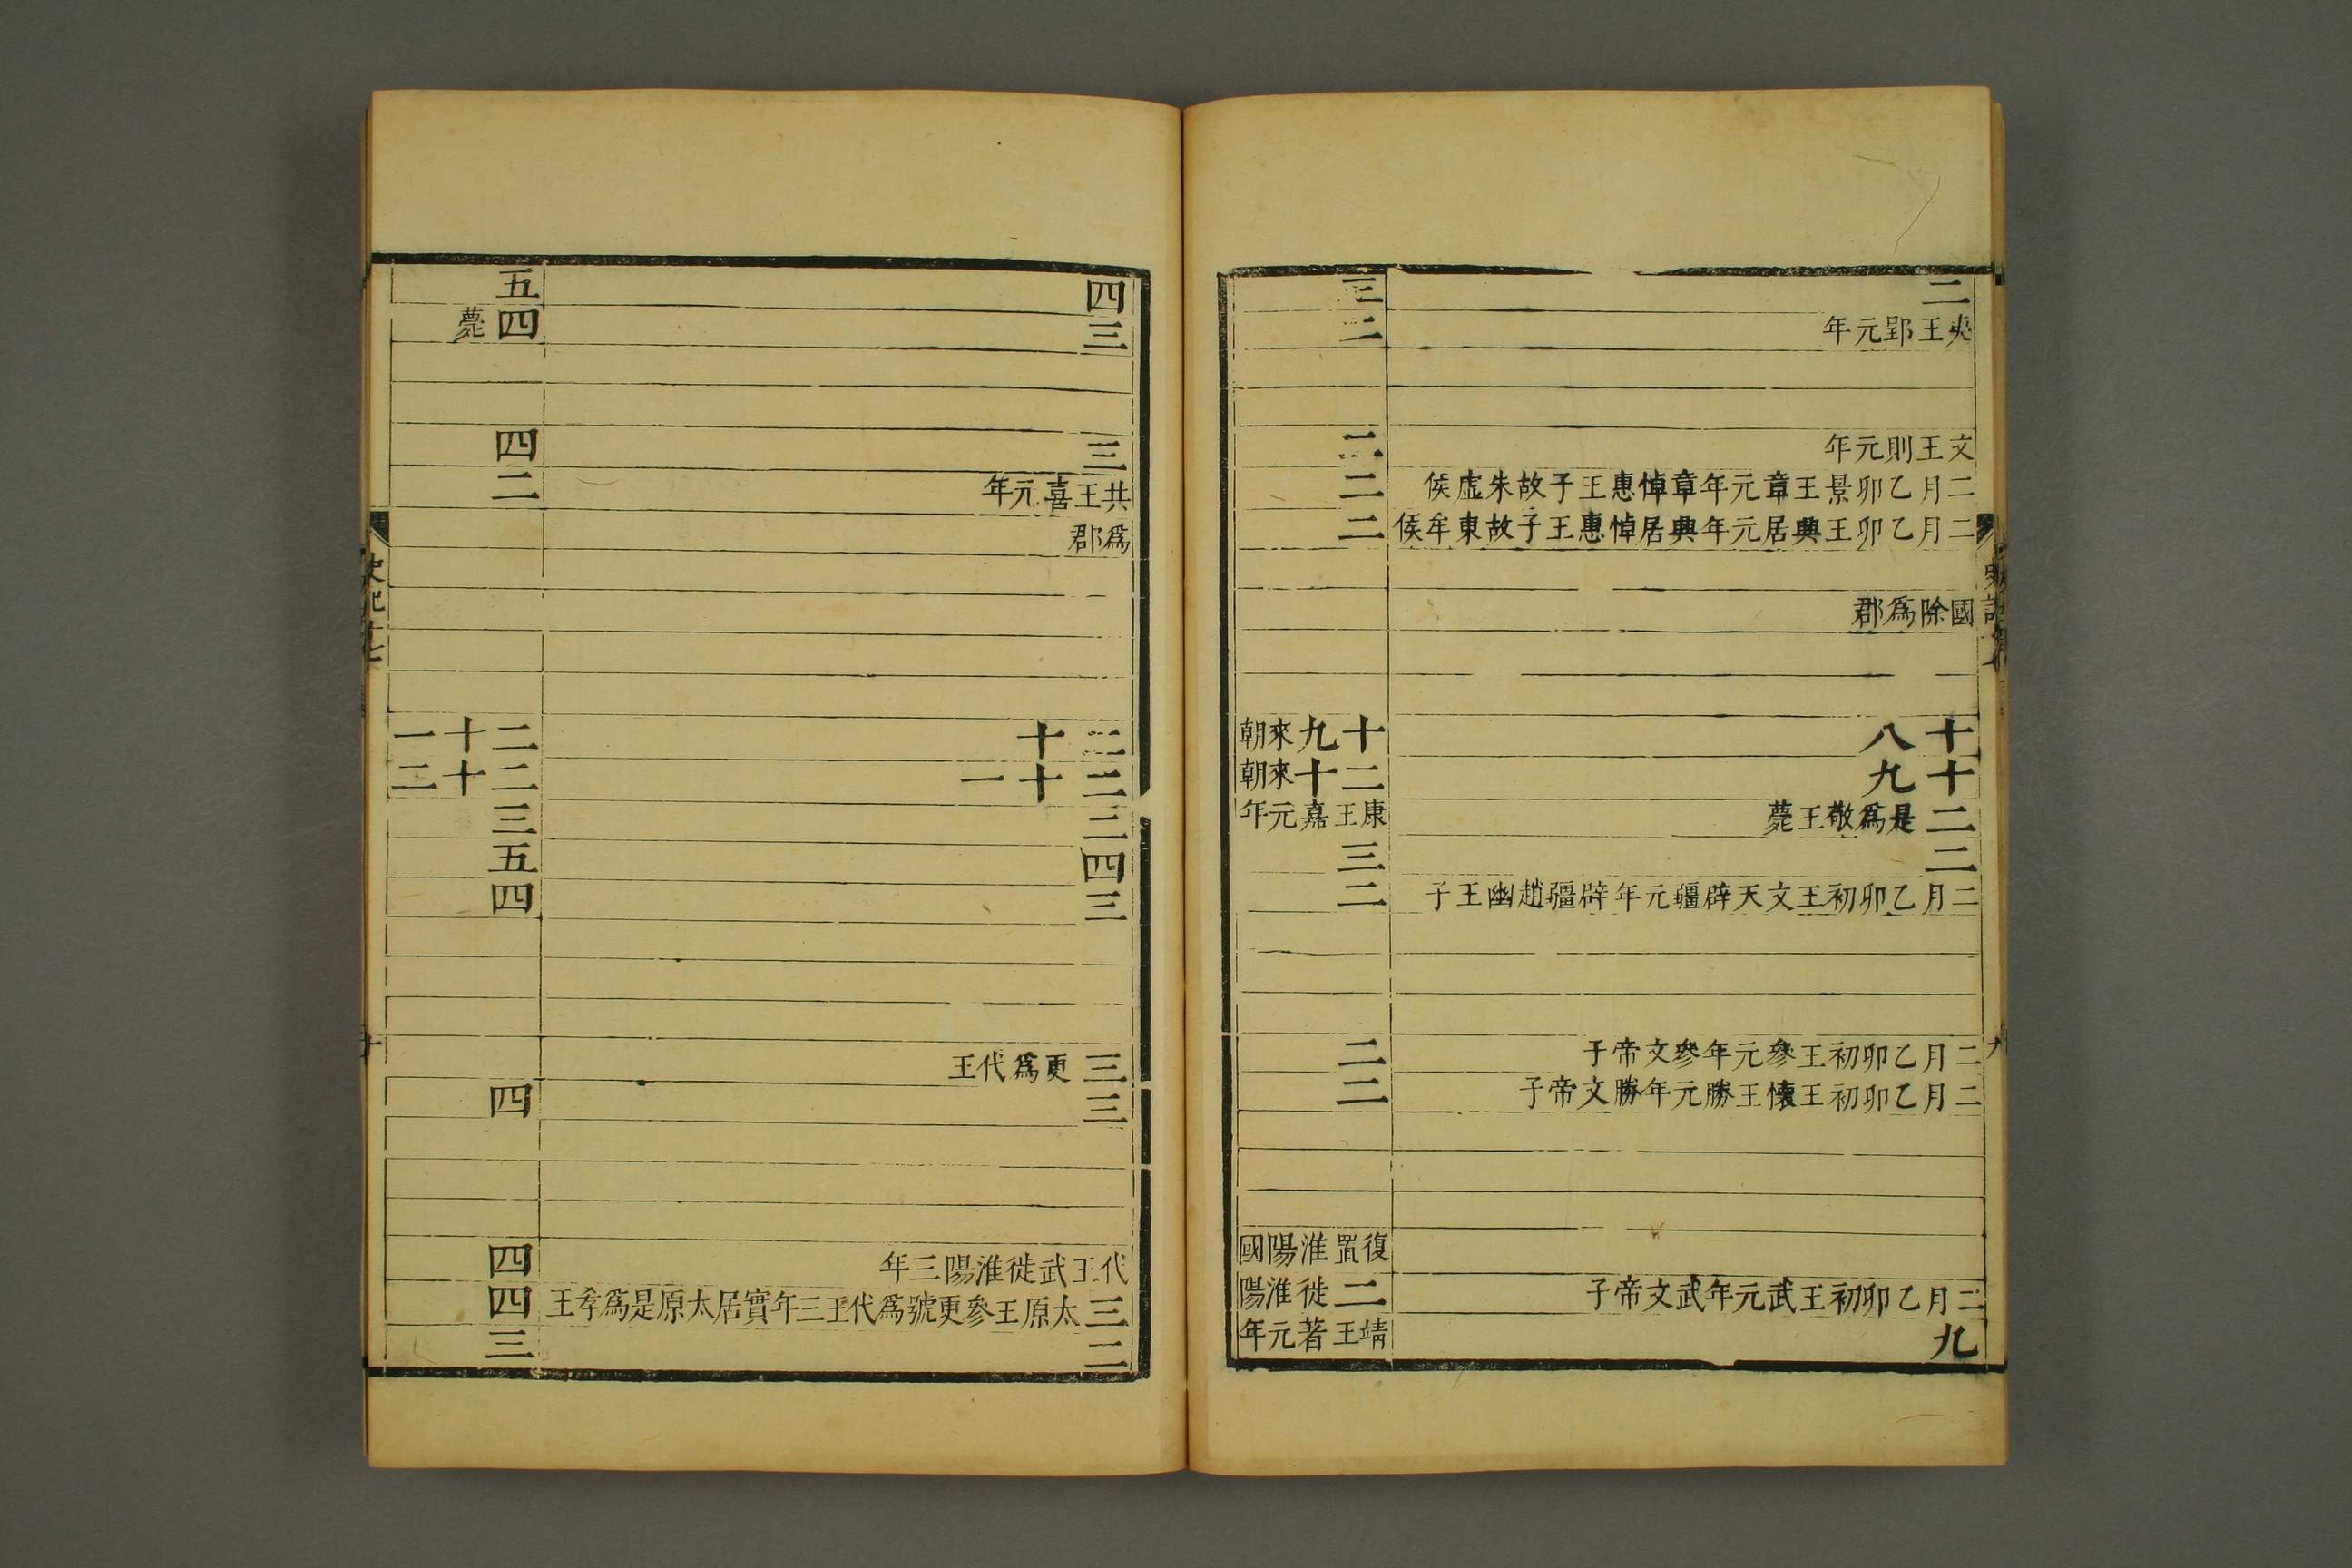 二
夷王郢元年
文王則元年
二月乙卯景王章元年章悼惠王子故朱虛侯
二月乙卯王興居元年興居悼惠王子故東牟侯
國除爲郡
十八
十九
二是爲敬王薨
二
二月乙卯初王文天辟疆元年辟疆趙幽王子
二月乙卯初王參元年參文帝子
二月乙卯初王懷王勝元年勝文帝子
二月乙卯初王武元年武文帝子
九
三
二
二
二
二
十九來朝
二十來朝
康王嘉元年
三
二
二
二
復置淮陽國
二徙淮陽
靖王著元年
四
三
三
共王喜元年
爲郡
二十
二十一
二
四
三
三更爲代王
三
代王武徙淮陽三年
三太原王參更號爲代王三年實居太原是爲孝王
二
五
四薨
四
二
二十一
二十二
三
五
四
四
四
四
三